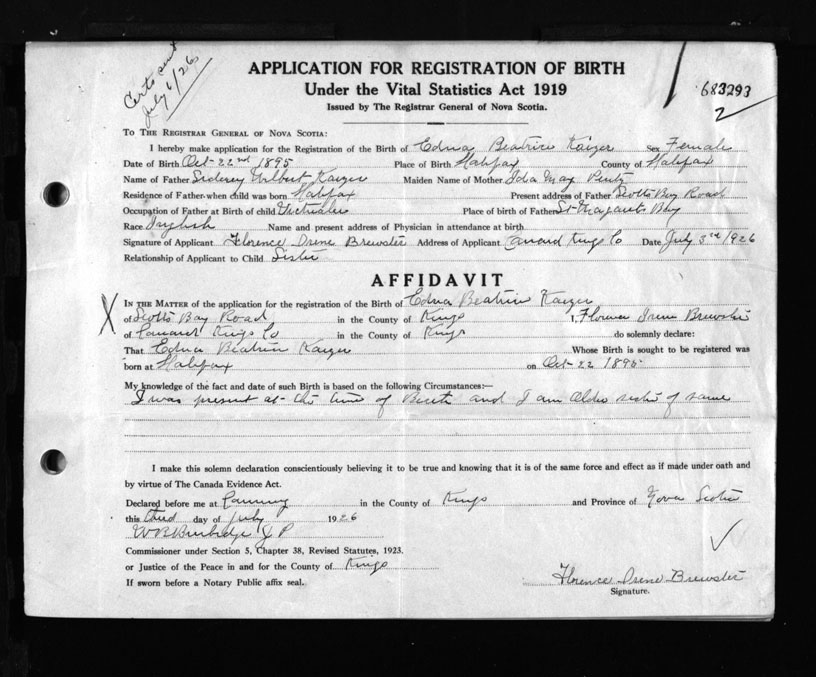 Certs sent
July 6/26
APPLICATION FOR REGISTRATION OF BIRTH
Under the Vital Statistics Act 1919
Issued by The Registrar General of Nova Scotia.
683293
2
TO THE REGISTRAR GENERAL OF NOVA SCOTIA:
I hereby make application for the Registration of the Birth of Edna Beatrice Kaizer Sex Female
Date of Birth Oct 22nd 1895 Place of Birth Halifax County of Halifax
Name of Father Wilbert Kaizer Maiden Name of Mother Ida May Pentz
Residence of Father when child was born Halifax Present address of Father Scotts Bay Road
Occupation of Father at Birth of child Place of birth of Father St Margarets Bay
Race English Name and present address of Physician in attendance at birth
Signature of Applicant Florence Irene Brewster Address of Applicant Canard Kings Co Date July 3rd 1926
Relationship of Applicant to Child Sister
AFFIDAVIT
X IN THE MATTER of the application for the registration of the Birth of Edna Beatrice Kaizer
of Scotts Bay Road in the County of Kings I, Florence Irene Brewster
of Canard Kings Co in the County of Kings do solemnly declare:
That Edna Beatrice Kaizer Whose Birth is sought to be registered was
born at Halifax on Oct 22 1895
My knowledge of the fact and date of such Birth is based on the following Circumstances:—
I was present at the time of Birth and I am older sister of same
I make this solemn declaration conscientiously believing it to be true and knowing that it is of the same force and effect as if made under oath and
by virtue of The Canada Evidence Act.
Declared before me at Canning in the County of Kings and Province of Nova Scotia
this third day of July 1926
W B Burbidge J P
Commissioner under Section 5, Chapter 38, Revised Statutes, 1923.
or Justice of the Peace in and for the County of Kings
If sworn before a Notary Public affix seal.
Florence Irene Brewster
Signature.